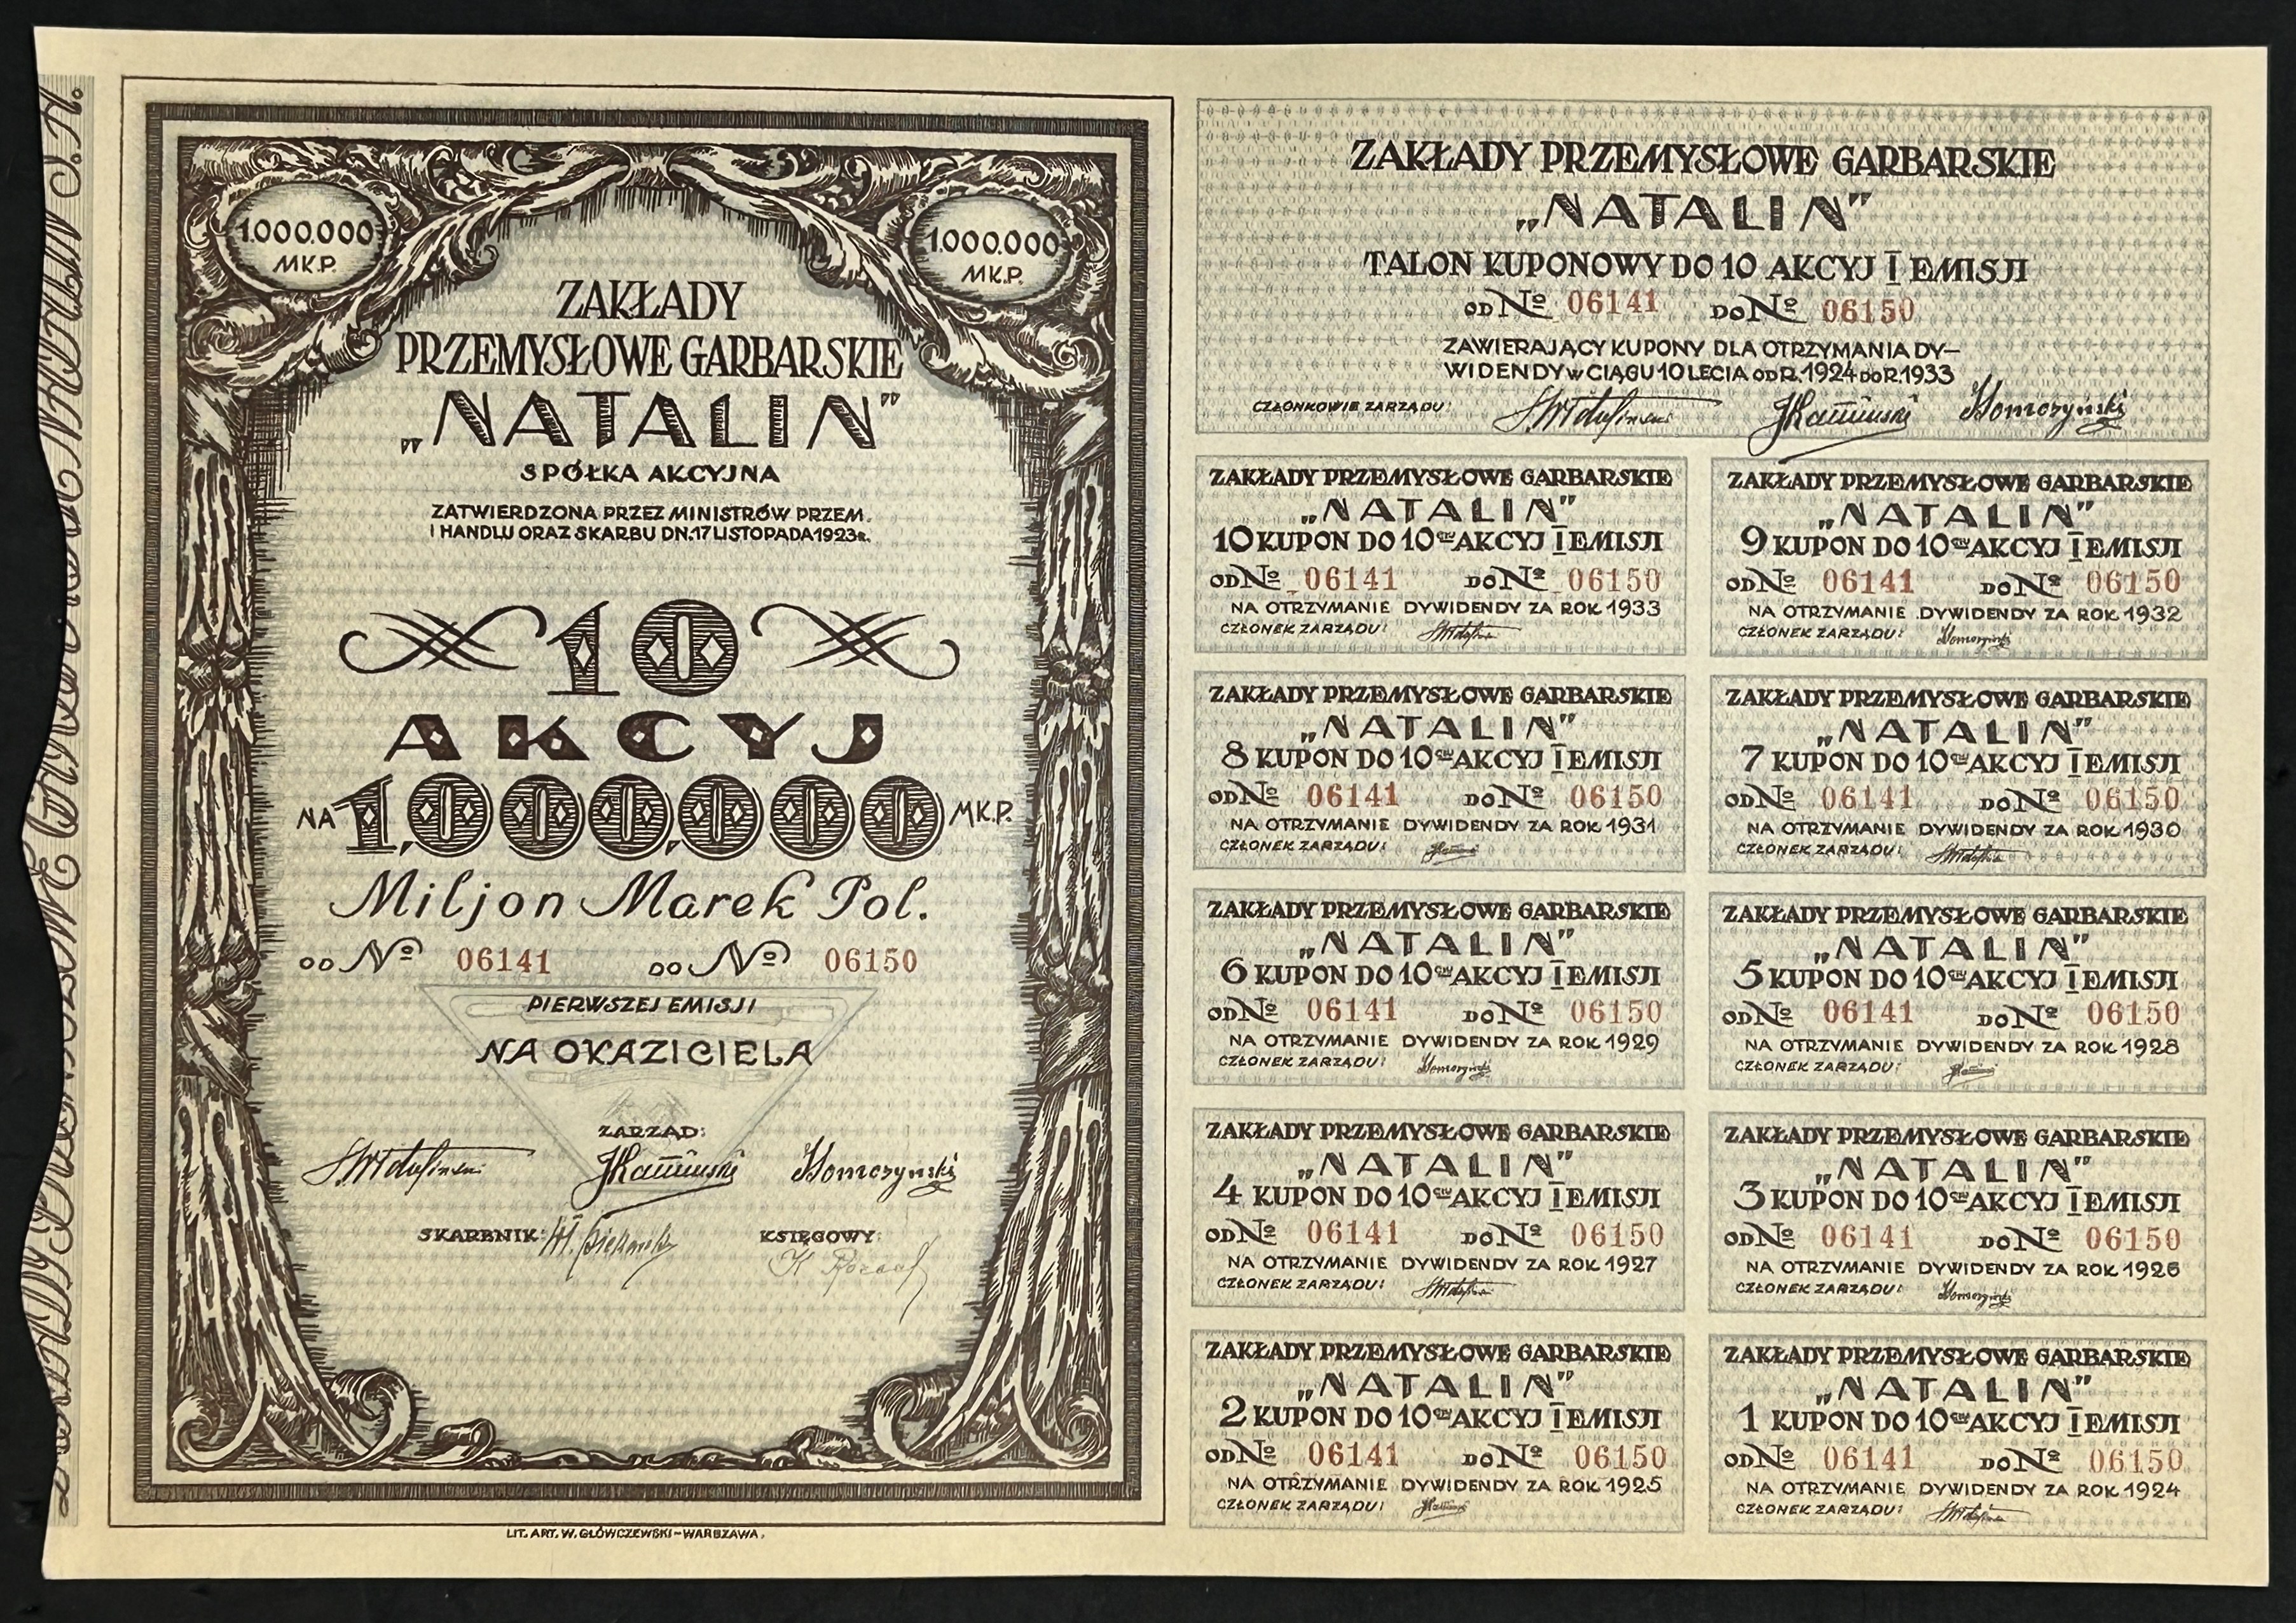 ZAKŁADY PRZEMYSŁOWE GARBARSKIE NATALIN S.A.
1.000.000
MK.P.
1.000.000
MK.P.
ZAKŁADY
PRZEMYSŁOWE GARBARSKIE
„NATALIN”
SPÓŁKA AKCYJNA
ZATWIERDZONA PRZEZ MINISTRÓW PRZEM.
I HANDLU ORAZ SKARBU DN. 17 LISTOPADA 1923 R.
10
AKCYJ
NA 1,000,000 MK.P.
Miljon Marek Pol.
OD No 06141 DO No 06150
PIERWSZEJ EMISJI
NA OKAZICIELA
ZARZĄD:
JKamiński Homorzyński
SKARBNIK: KSIĘGOWY:
LIT. ART. W. GŁÓWCZEWSKI-WARSZAWA.
ZAKŁADY PRZEMYSŁOWE GARBARSKIE
„NATALIN”
TALON KUPONOWY DO 10 AKCYJ I EMISJI
OD No 06141 DO No 06150
ZAWIERAJĄCY KUPONY DLA OTRZYMANIA DY-
WIDENDY W CIĄGU 10 LECIA OD R. 1924 DO R. 1933
CZŁONKOWIE ZARZĄDU: JKamiński Homorzyński
ZAKŁADY PRZEMYSŁOWE GARBARSKIE
„NATALIN”
10 KUPON DO 10CIU AKCYJ I EMISJI
OD No 06141 DO No 06150
NA OTRZYMANIE DYWIDENDY ZA ROK 1933
CZŁONEK ZARZĄDU:
ZAKŁADY PRZEMYSŁOWE GARBARSKIE
„NATALIN”
9 KUPON DO 10CIU AKCYJ I EMISJI
OD No 06141 DO No 06150
NA OTRZYMANIE DYWIDENDY ZA ROK 1932
CZŁONEK ZARZĄDU: Homorzyński
ZAKŁADY PRZEMYSŁOWE GARBARSKIE
„NATALIN”
8 KUPON DO 10CIU AKCYJ I EMISJI
OD No 06141 DO No 06150
NA OTRZYMANIE DYWIDENDY ZA ROK 1931
CZŁONEK ZARZĄDU: JKamiński
ZAKŁADY PRZEMYSŁOWE GARBARSKIE
„NATALIN”
7 KUPON DO 10CIU AKCYJ I EMISJI
OD No 06141 DO No 06150
NA OTRZYMANIE DYWIDENDY ZA ROK 1930
CZŁONEK ZARZĄDU:
ZAKŁADY PRZEMYSŁOWE GARBARSKIE
„NATALIN”
6 KUPON DO 10CIU AKCYJ I EMISJI
OD No 06141 DO No 06150
NA OTRZYMANIE DYWIDENDY ZA ROK 1929
CZŁONEK ZARZĄDU: Homorzyński
ZAKŁADY PRZEMYSŁOWE GARBARSKIE
„NATALIN”
5 KUPON DO 10CIU AKCYJ I EMISJI
OD No 06141 DO No 06150
NA OTRZYMANIE DYWIDENDY ZA ROK 1928
CZŁONEK ZARZĄDU: JKamiński
ZAKŁADY PRZEMYSŁOWE GARBARSKIE
„NATALIN”
4 KUPON DO 10CIU AKCYJ I EMISJI
OD No 06141 DO No 06150
NA OTRZYMANIE DYWIDENDY ZA ROK 1927
CZŁONEK ZARZĄDU:
ZAKŁADY PRZEMYSŁOWE GARBARSKIE
„NATALIN”
3 KUPON DO 10CIU AKCYJ I EMISJI
OD No 06141 DO No 06150
NA OTRZYMANIE DYWIDENDY ZA ROK 1926
CZŁONEK ZARZĄDU: Homorzyński
ZAKŁADY PRZEMYSŁOWE GARBARSKIE
„NATALIN”
2 KUPON DO 10CIU AKCYJ I EMISJI
OD No 06141 DO No 06150
NA OTRZYMANIE DYWIDENDY ZA ROK 1925
CZŁONEK ZARZĄDU: JKamiński
ZAKŁADY PRZEMYSŁOWE GARBARSKIE
„NATALIN”
1 KUPON DO 10CIU AKCYJ I EMISJI
OD No 06141 DO No 06150
NA OTRZYMANIE DYWIDENDY ZA ROK 1924
CZŁONEK ZARZĄDU: